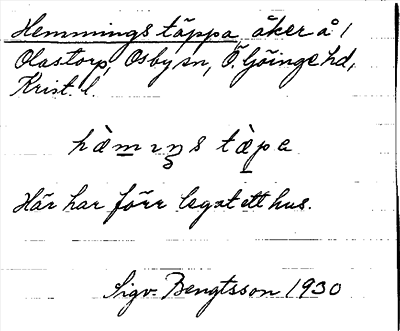 Hemmings täppa, åker å 1
Olastorp, Osby sn, Ö. Göinge hd,
Krist. l.
hὰm̲ ıŋs tὰ̲pa
Här har förr legat ett hus.
Sigv. Bengtsson 1930